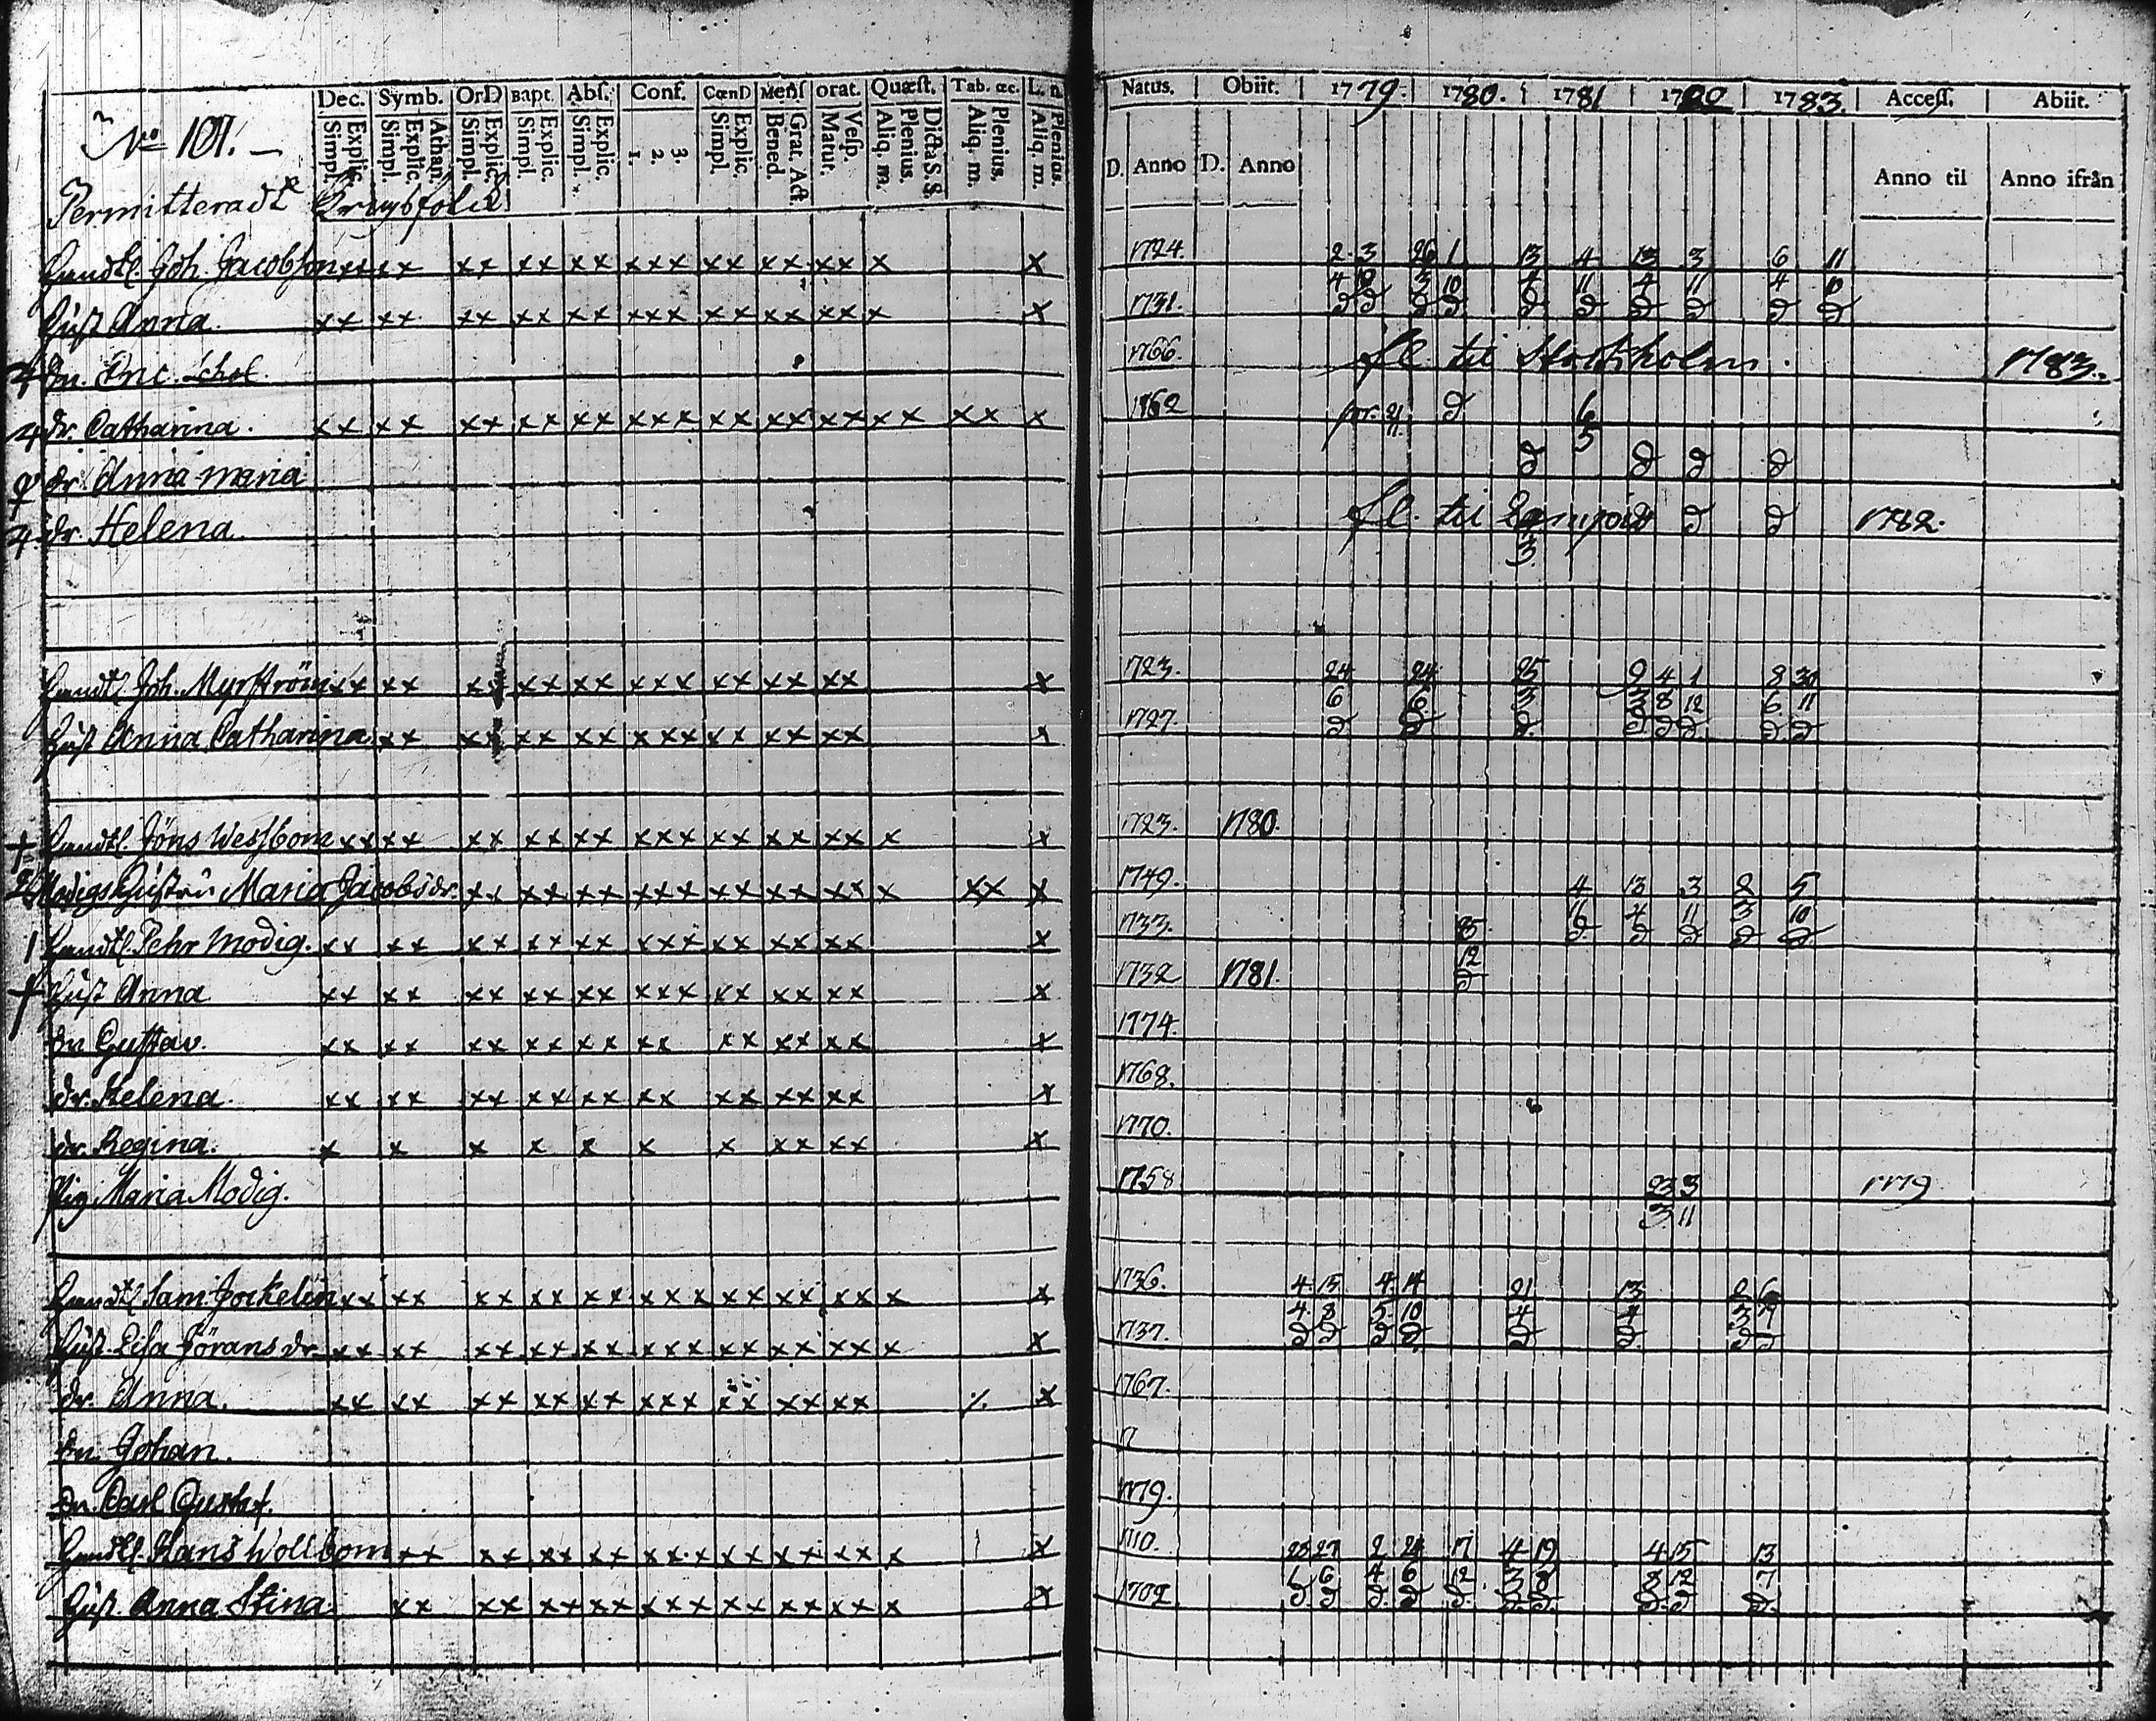 Dec. Symb. OrD Bapt. Abs. Conf. CœnD Menſ orat. Quæſt. Tab. œc. L. n Natus. Obiit. 1779. 1780. 1781 1782 1783. Acceſſ. Abiit.
No 107.
Simpl. Explic. Simpl. Explic. Athan. Simpl. Explic. Simpl. Explic. Simpl. Explic. 1. 2. 3. Simpl. Explic. Bened. Grat. Act. Matut. Veſp. Aliq. m. Plenius. Dicta S. S. Aliq. m. Plenius. Aliq. m. Plenius. D. Anno D. Anno Anno til Anno ifrån
Permitteradt
Joh. Jacobſon xx xx xx xx xx xxx xx xx xx x x 1724. 2 3 26 1 13 4 13 3 6 11
4 10 3 10 4 11 4 11 4 10
Huſt Anna xx xx xx xx xx xxx xx xx xx x x 1731. D D D D D D D D D D
Schol. 1766. fl. til Stockholm. 1783.
dr. Catharina. xx xx xx xx xx xxx xx xx xx xx xx x 1762 D 6
5
dr. Anna Maria D D D D
dr. Helena. fl. til D D 1782.
3
Joh. Myrſtröm xx xx xx xx xx xxx xx xx xx x 1723. 24 24 25 2 4 1 8 30
6 6 3 3 8 12 6 11
Huſt Anna Catharina xx xx xx xx xxx xx xx xx x 1727. D D D D D D D D
Jöns Wessbom xx xx xx xx xx xxx xx xx xx x x 1723. 1780.
Modigs Huſtru Maria Jacobsdr. xx xx xx xxx xx xx xx x xx x 1749. 4 13 3 2 5
16 4 11 3 10
Pehr Modig. xx xx xx xx xx xxx xx xx xx x 1733. D D D D D
12
Huſt Anna xx xx xx xx xx xxx xx xx xx x 1732 1781. D
Gustav. xx xx xx xx xx xx xx xx xx x 1774.
dr. Helena. xx xx xx xx xx xx xx xx xx x 1768.
dr. Regina. x x x x x x x xx xx x 1770.
Pig. Maria Modig. 1758 23 3 1779
3 11
Sam. Jockelin xx xx xx xx xx xxx xx xx xx x x 1736. 4 15 4 14 21 13 2 6
4 8 5 10 4 4 3 7
Huſt. Lisa Jörans dr. xx xx xx xx xx xxx xx xx xx x x 1737. D D D D D D D D
dr. Anna. xx xx xx xx xx xxx xx xx xx x 1767.
Johan.
Carl Gustaf. 1779.
Hans Wollbom xx xx xx xx xxx xx xx xx x x 1710. 27 2 17 4 19 4 15 13
6 4 6 12 3 8 8 12 7
Huſt. Anna Stina xx xx xx xx xxx xx xx xx x x 1702 D D D D D D D D D D